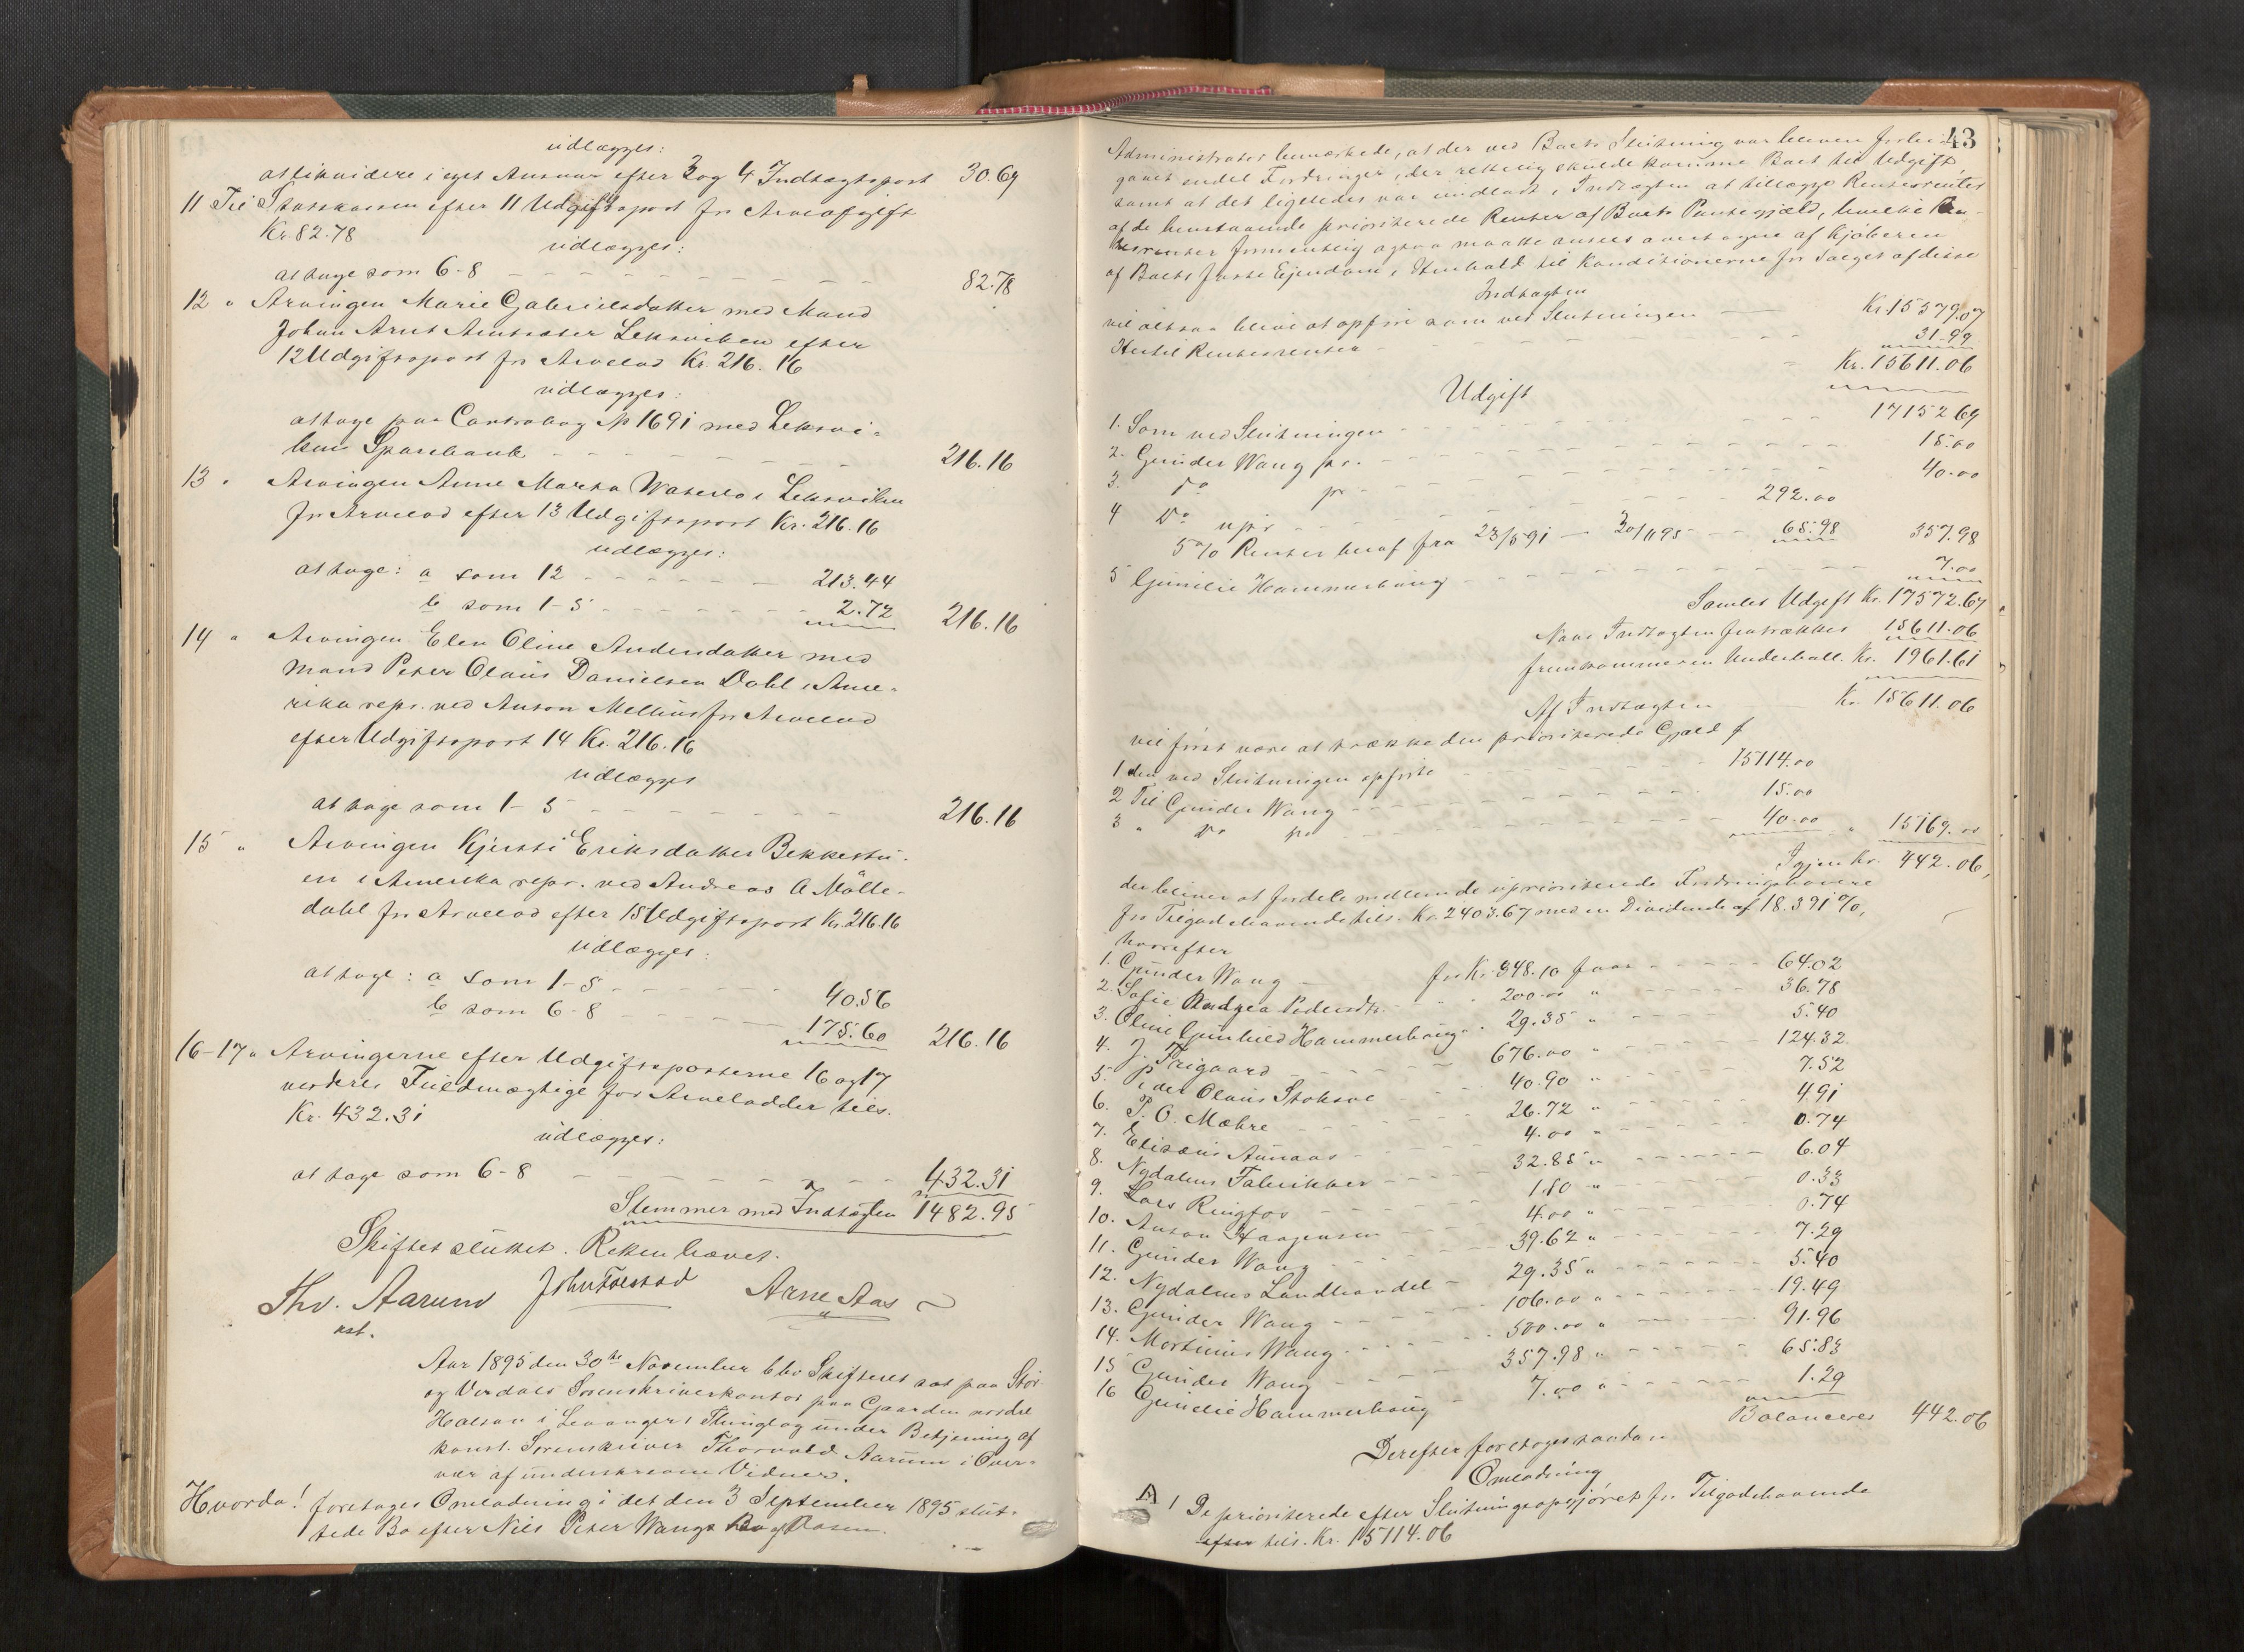 udlægges:
at likvidere i eget Ansvar efter 3 og 4 Indtægtspost 30.69
11 Til Statskassen efter 11 Udgiftspost for Arveafgift
Kr. 82.78
udlægges:
at tage som 6-8 82.78
12 " Arvingen Marie Gabrielsdatter med Mand
Johan Arnt Arntsæter Leksviken efter
12 Udgiftspost for Arvelod Kr. 216.16
udlægges:
at tage paa Contrabog No 1691 med Leksvi-
kens Sparebank 216.16
13 " Arvingen Anne Marta i Leksviken
for Arvelod efter 13 Udgiftspost Kr. 216.16
udlægges:
at tage: a som 12 213.44
b som 1-5 2.72 216.16
14 " Arvingen Elen Oline Andersdatter med
Mand Peter Olaus Danielsen Dahl i Ame-
rika repr. ved Anton Mellius for Arvelod
efter Udgiftspost 14 Kr. 216.16
udlægges
at tage som 1-5 216.16
15 " Arvingen Kjersti Eriksdatter Bekkestu-
en i Amerika repr. ved Andreas A Mölle-
dahl for Arvelod efter 15 Udgiftspost Kr. 216.16
udlægges:
at tage: a som 1-5 40.56
b som 6-8 175.60 216.16
16-17 " Arvingerne efter Udgiftsposterne 16 og 17
vorderes Fuldmægtige for Arvelodder tils.
Kr. 432.31
udlægges:
at tage som 6-8 432.31
Stemmer med Indtægten 1482.95
Skiftet sluttet. Retten hævet.
Thv. Aarum John Arne Aas
cst.
Aar 1895 den 30te November blev Skifteret sat paa Stör-
og Verdals Sorenskriverkontor paa Gaarden nordre
Halsan i Levanger Thinglag under Betjening af
konst. Sorenskriver Thorvald Aarum i Over-
vær af underskrevne Vidner.
Hvorda! foretoges Omlodning i det den 3 September 1895 slut-
tede Bo efter Nils Peter Wangs
43
Administrator bemærkede, at der ved Boets Slutning var bleven forbi-
gaaet endel Fordringer, der rettelig skulde komme Boet til Udgift,
samt at det ligeledes var undladt i Indtægten at tillægge Rentesrenter
af de henstaaende prioriterede Renter af Boets Pantegjæld, hvilke Ren-
tesrenter formentlig ogsaa maatte ansees overtagne af Kjöberen
af Boets faste Ejendom i Henhold til Konditionerne for Salget af disse
Indtægten
vil altsaa blive at opföre som ved Slutningen Kr. 15579.07
Hertil Rentesrenter 31.99
Kr. 15611.06
Udgift
1. Som ved Slutningen 17152.69
2. Gunder Wang pr. 15.00
3. Do pr 40.00
4 Do upr 292.00
5% Renter heraf fra 23/5 91 — 30/11 95 65.98 357.98
5 Gunilie Hammerhaug 7.00
Samlet Udgift Kr. 17572.67
Naar Indtægten fratrækkes 15611.06
fremkommer en Underball. Kr. 1961.61
Af Indtægten Kr. 15611.06
vil först være at trække den prioriterede Gjæld
1 den ved Slutningen opförte 15114.00
2 Til Gunder Wang 15.00
3 " Do pr 40.00 " 15169.00
Igjen Kr. 442.06,
der bliver at fordele mellem de uprioriterede Fordringshavere
for Tilgodehavende tils. Kr. 2403.67 med en Dividende af 18.391%,
hvorefter
1. Gunder Wang for Kr. 348.10 faar 64.02
2. Sofie Andrea Pedersdtr. 200.00 " 36.78
3. Oline Gunhild Hammerhaug 29.35 " 5.40
4. J. Trigaard 676.00 " 124.32
5. Peder Olaus Stokvol 40.90 " 7.52
6. P. O. Mæhre 26.72 " 4.91
7. Elisæus Aunaas 4.00 " 0.74
8. Nydalens Fabrikker 32.85 " 6.04
9. Lars Ringfos 1.80 " 0.33
10. Anton Haagensen 4.00 " 0.74
11. Gunder Wang 39.62 " 7.29
12. Nydalens Landhandel 29.35 " 5.40
13. Gunder Wang 106.00 " 19.49
14. Mortinus Wang 500.00 " 91.96
15 Gunder Wang 357.98 " 65.83
16 Gunilie Hammerhaug 7.00 " 1.29
Balancerer 442.06
Derefter foretoges saadan
Omlodning
A 1 De prioriterede efter Slutningsopgjöret for Tilgodehavende
efter tils. Kr. 15114.06